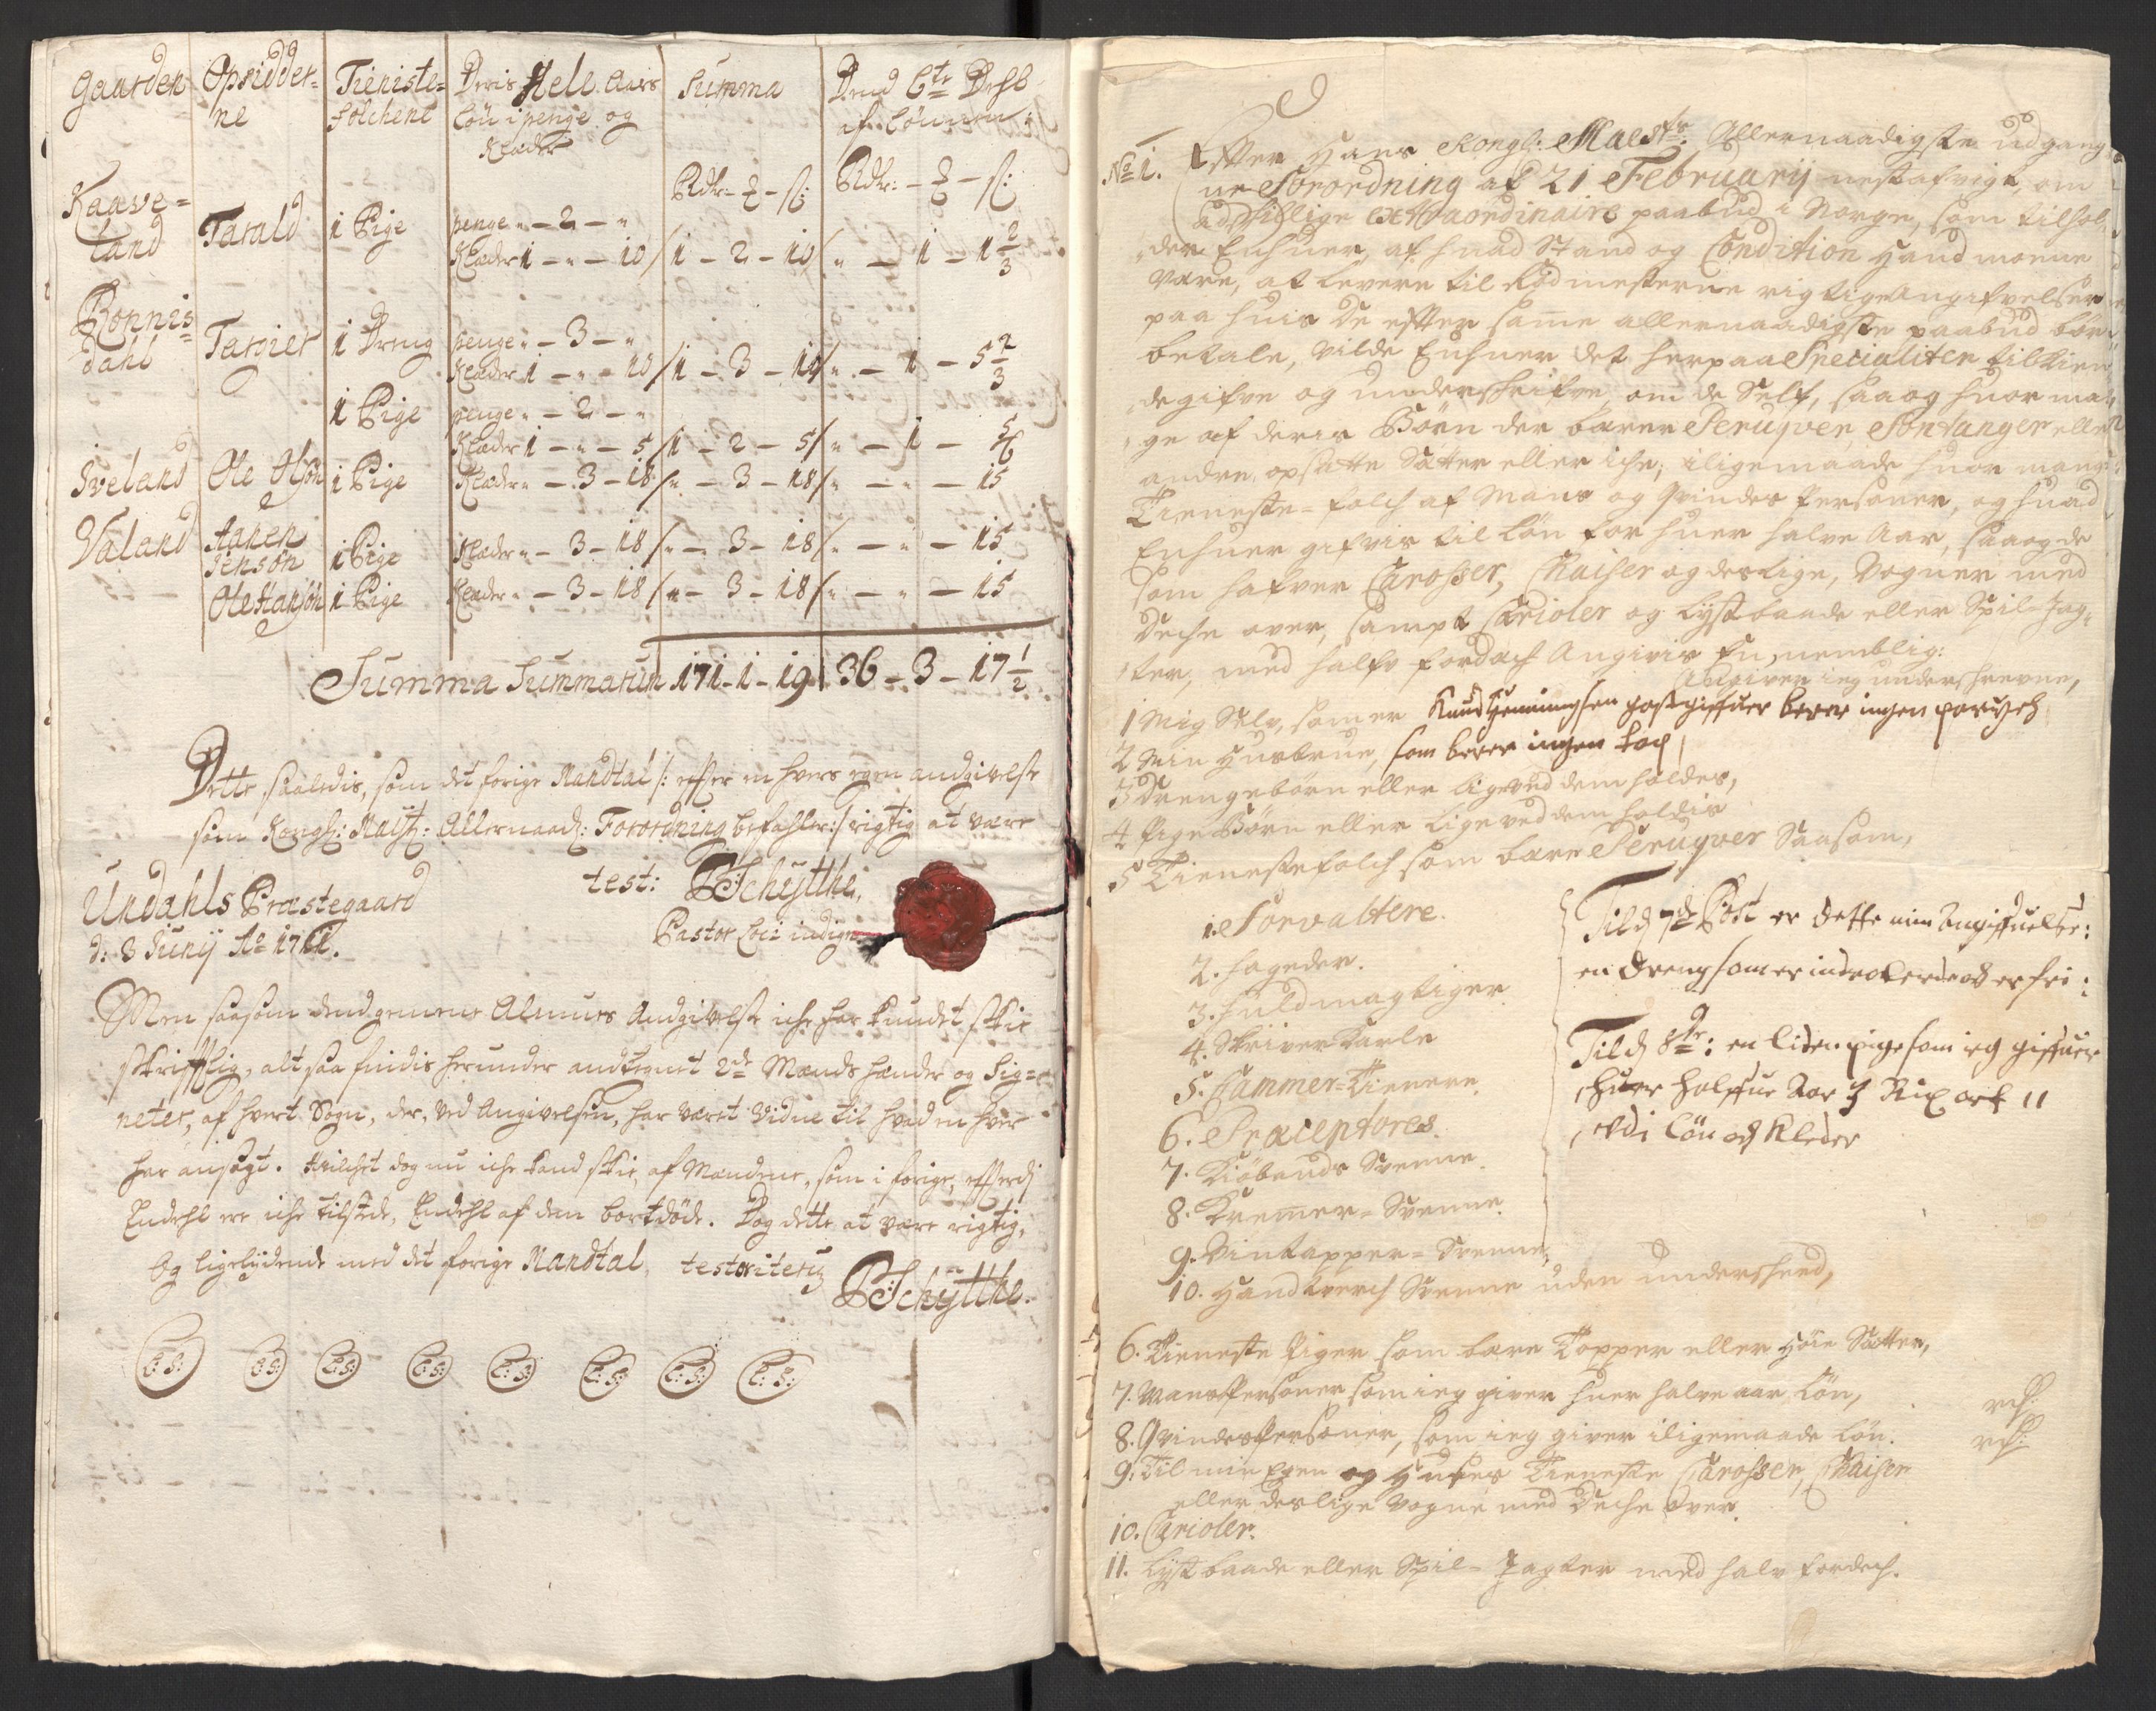 Gaarden Opsidder= Tieniste= Deris Hele Aars Summa Dend 6te Dehl
ne folchene Løn i penge og af Lønnen:
Klæder
Rdlr: - ß: Rdlr: - ß:
Kaave= penge " - 2 - "
land Tarald 1 Pige Klæder 1 - " - 10 / 1 - 2 - 10 / " - 1 - 1 2/3
Ronnis= penge " - 3 - "
dahl Targier 1 Dreng Klæder 1 - " - 10 / 1 - 3 - 10 / " - 1 - 5 2/3
1 Pige penge " - 2 - "
Klæder 1 - " - 5 / 1 - 2 - 5 / " - 1 - 5/6
Sveland Ole Olsøn 1 Pige Klæder " - 3 - 18 / " - 3 - 18 / " - " - 15
Valand Aanen
Jensøn 1 Pige Klæder " - 3 - 18 / " - 3 - 18 / " - " - 15
Ole Hansøn 1 Pige Klæder " - 3 - 18 / " - 3 - 18 / " - " - 15
Summa Summarum 171 - 1 - 19 36 - 3 - 17 1/2
Dette, saaledis, som det forige Mandtal /: efter en hvers egen andgivelse
som Kongl: Maijts: Allernaad: Forordning befahler :/ rigtig at være
test: Schytthe,
Undahls Præstegaard
Pastor Loci indign
d: 3 Junij Ao 1711.
Men saasom dend gemene Almues Andgivelse iche har kundet skie
skriftlig, alt saa findis herunder andtegnet 2de Mænds hænder og Sig=
neter, af hvert Sogn, der, ved Angivelsen, har været Vidne til hvad en hver
har ansagt. Hvilchet dog nu iche kand skie, af Mændene, som i forige, efterdj
Endehl ere iche tilstede, Endehl af dem bortdøde. Dog dette at være rigtig,
Og ligelydende med det forige Mandtal, testor iterum
Schytthe.
L:S: L:S: L:S: L:S: L:S: L:S: L:S: L:S:
No 1. Efter Hans Kongl: Mäesttz: Allernaadigste udgang=
ne Forordning af 21 Februarij nestafvigt, om
adskillige extraordinaire paabud i Norge, som tilhol=
der Enhuer, af huad Stand og Condition hand monne
være, at levere til Fodmesterne rigtige Angifvelser
paa huis De efter samme allernaadigste paabud bør
betale, vilde Enhuer det herpaa Specialiter tilkien=
degifve og underskrifve, om de Self, saa og huor man=
ge af deris Børn der bærer Peruqver, Fontanger eller
andre opsatte Sætter eller iche, iligemaade huor mange
Tieneste=folch af Mans og Qvindes Personer, og huad
Enhuer gifvis til Løn for huer halve Aar, saa og de
som hafver Carosser, Chaiser og deslige, Vogner med
Deche over, sampt Carioler og Lystbaade eller Spil-Jag=
ter, med halfv fordech Angivis ku, nemblig:
Angiver ieg underskrevne,
1 Mig Selv, som er Knud Henningsen gastgiffuer berer ingen parych
2 Min Hustrue, som berer ingen top
3 Drengebørn eller ligeved dem holdes,
4 Pige Børn eller ligeved dem holdis
5 Tienestefolch som bære Peruqver Saasom,
1. Forvaltere.
2. fogeder.
3. fuldmægtiger.
4. Skriver Karle
5. Kammer=Tienere.
6. Præceptores.
7. Kiøbmands Svenne.
8. Kremer=Svenne.
9. Vintapper=Svenne.
10. Handtverch Svenne uden undersheed,
Til d 7de Post er dette min Angiffuelse:
en dreng som er indrolerde og er fri:
Til d 8te: en liden pige som ieg giffuer
huer halffue Aar 3 Rix ort 11
Løn og Kleder
6. Tieneste Piger som bære Topper eller Høie Sætter,
7. Mans Personer, som ieg giver huer halve aar Løn, rdl:
8. Qvindes Personer, som ieg giver iligemaade Løn. rdl:
9. Til min Egen og Huses Tieneste Carosser, Chaiser
eller deslige vogne med Deche over.
10. Carioler.
11. Lystbaade eller Spil=Jagter med halv fordech.